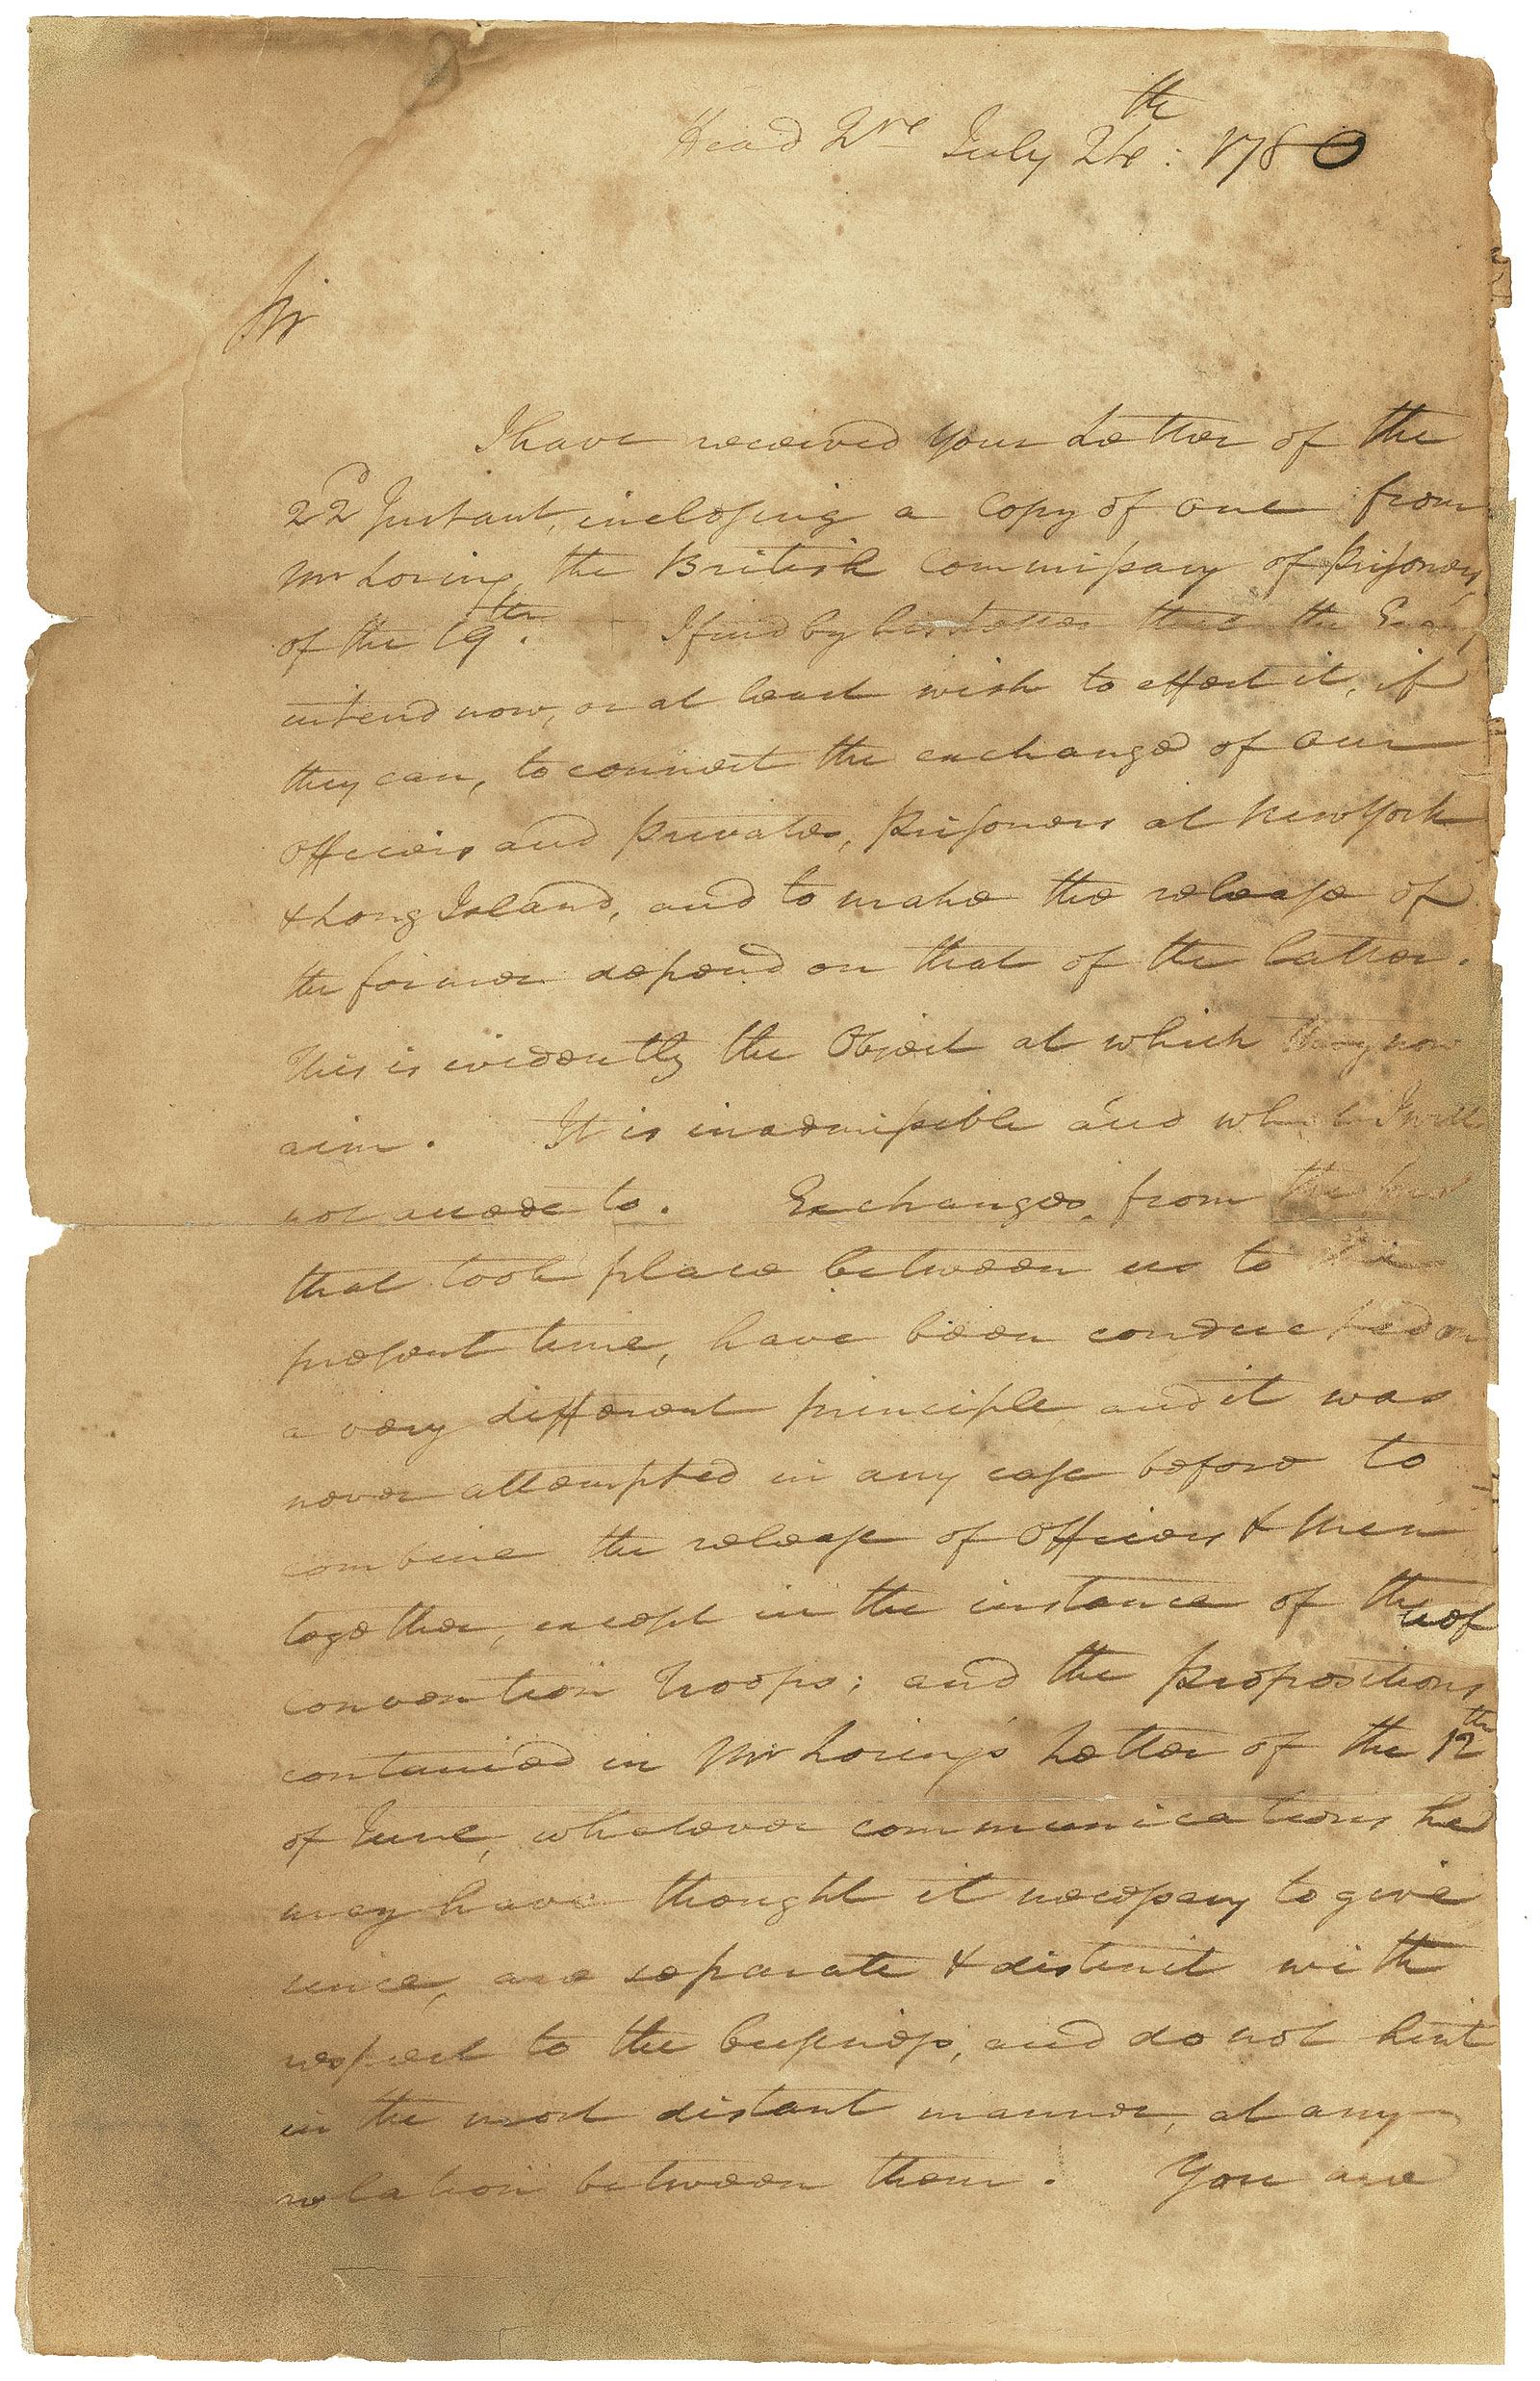 Head Qrs July 24th: 1780
Sir
I have received your Letter of the
22d Instant, inclosing a Copy of one from
Mr Loring, the British Commissary of Prisoners,
of the 19th. I find by his Letter that the Enemy
intend now, or at least wish to effect it, if
they can, to connect the exchange of our
Officers and privates, prisoners at New York
& Long Island, and to make the release of
the former depend on that of the latter.
This is evidently the Object at which they now
aim. It is inadmissible and what I will
not accede to. Exchanges, from the first
that took place between us to the
present time, have been conducted on
a very different principle and it was
never attempted in any case before to
combine the release of Officers & Men
together, except in the instance of the
Convention Troops; and the propositions
contained in Mr Loring's Letter of the 12th
of June, whatever communications he
may have thought it necessary to give
since, are separate & distinct with
respect to the business, and do not hint
in the most distant manner, at any
relation between them. You are